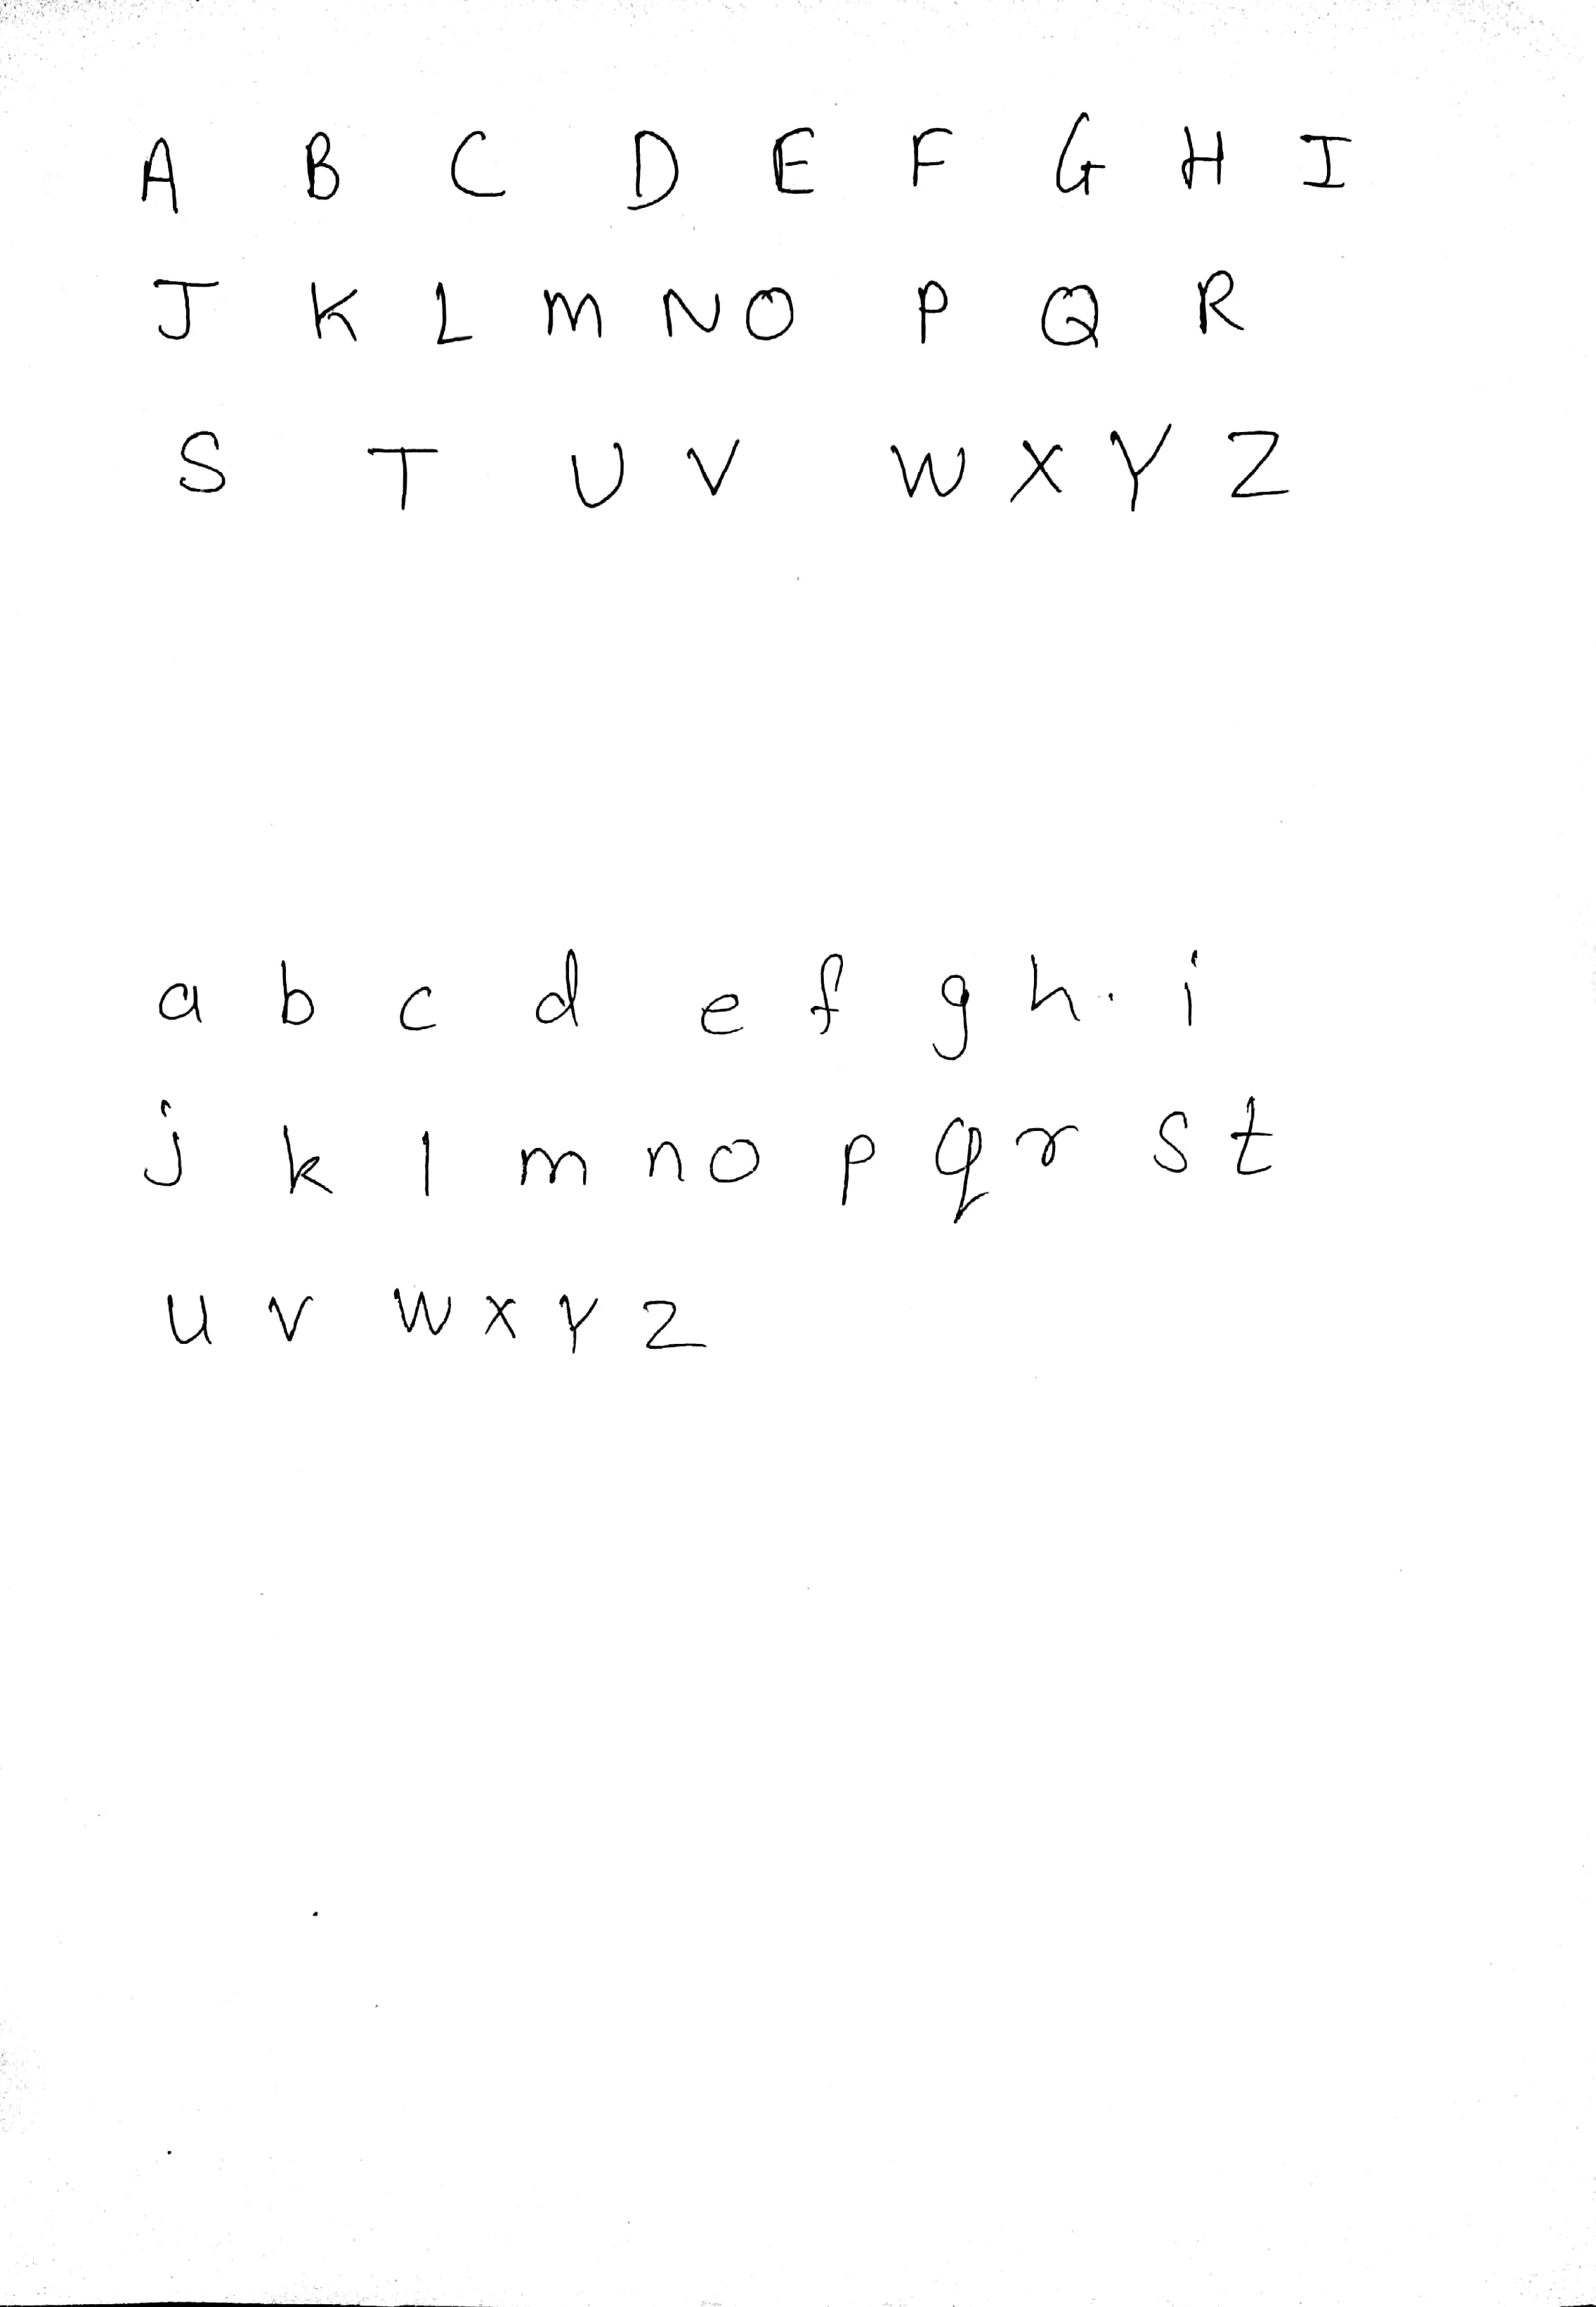 A B C D E F G H I
J K L M N O P Q R
S T U V W X Y Z
a b c d e f g h . i
j k l m n o p q r s t
u v w x y z